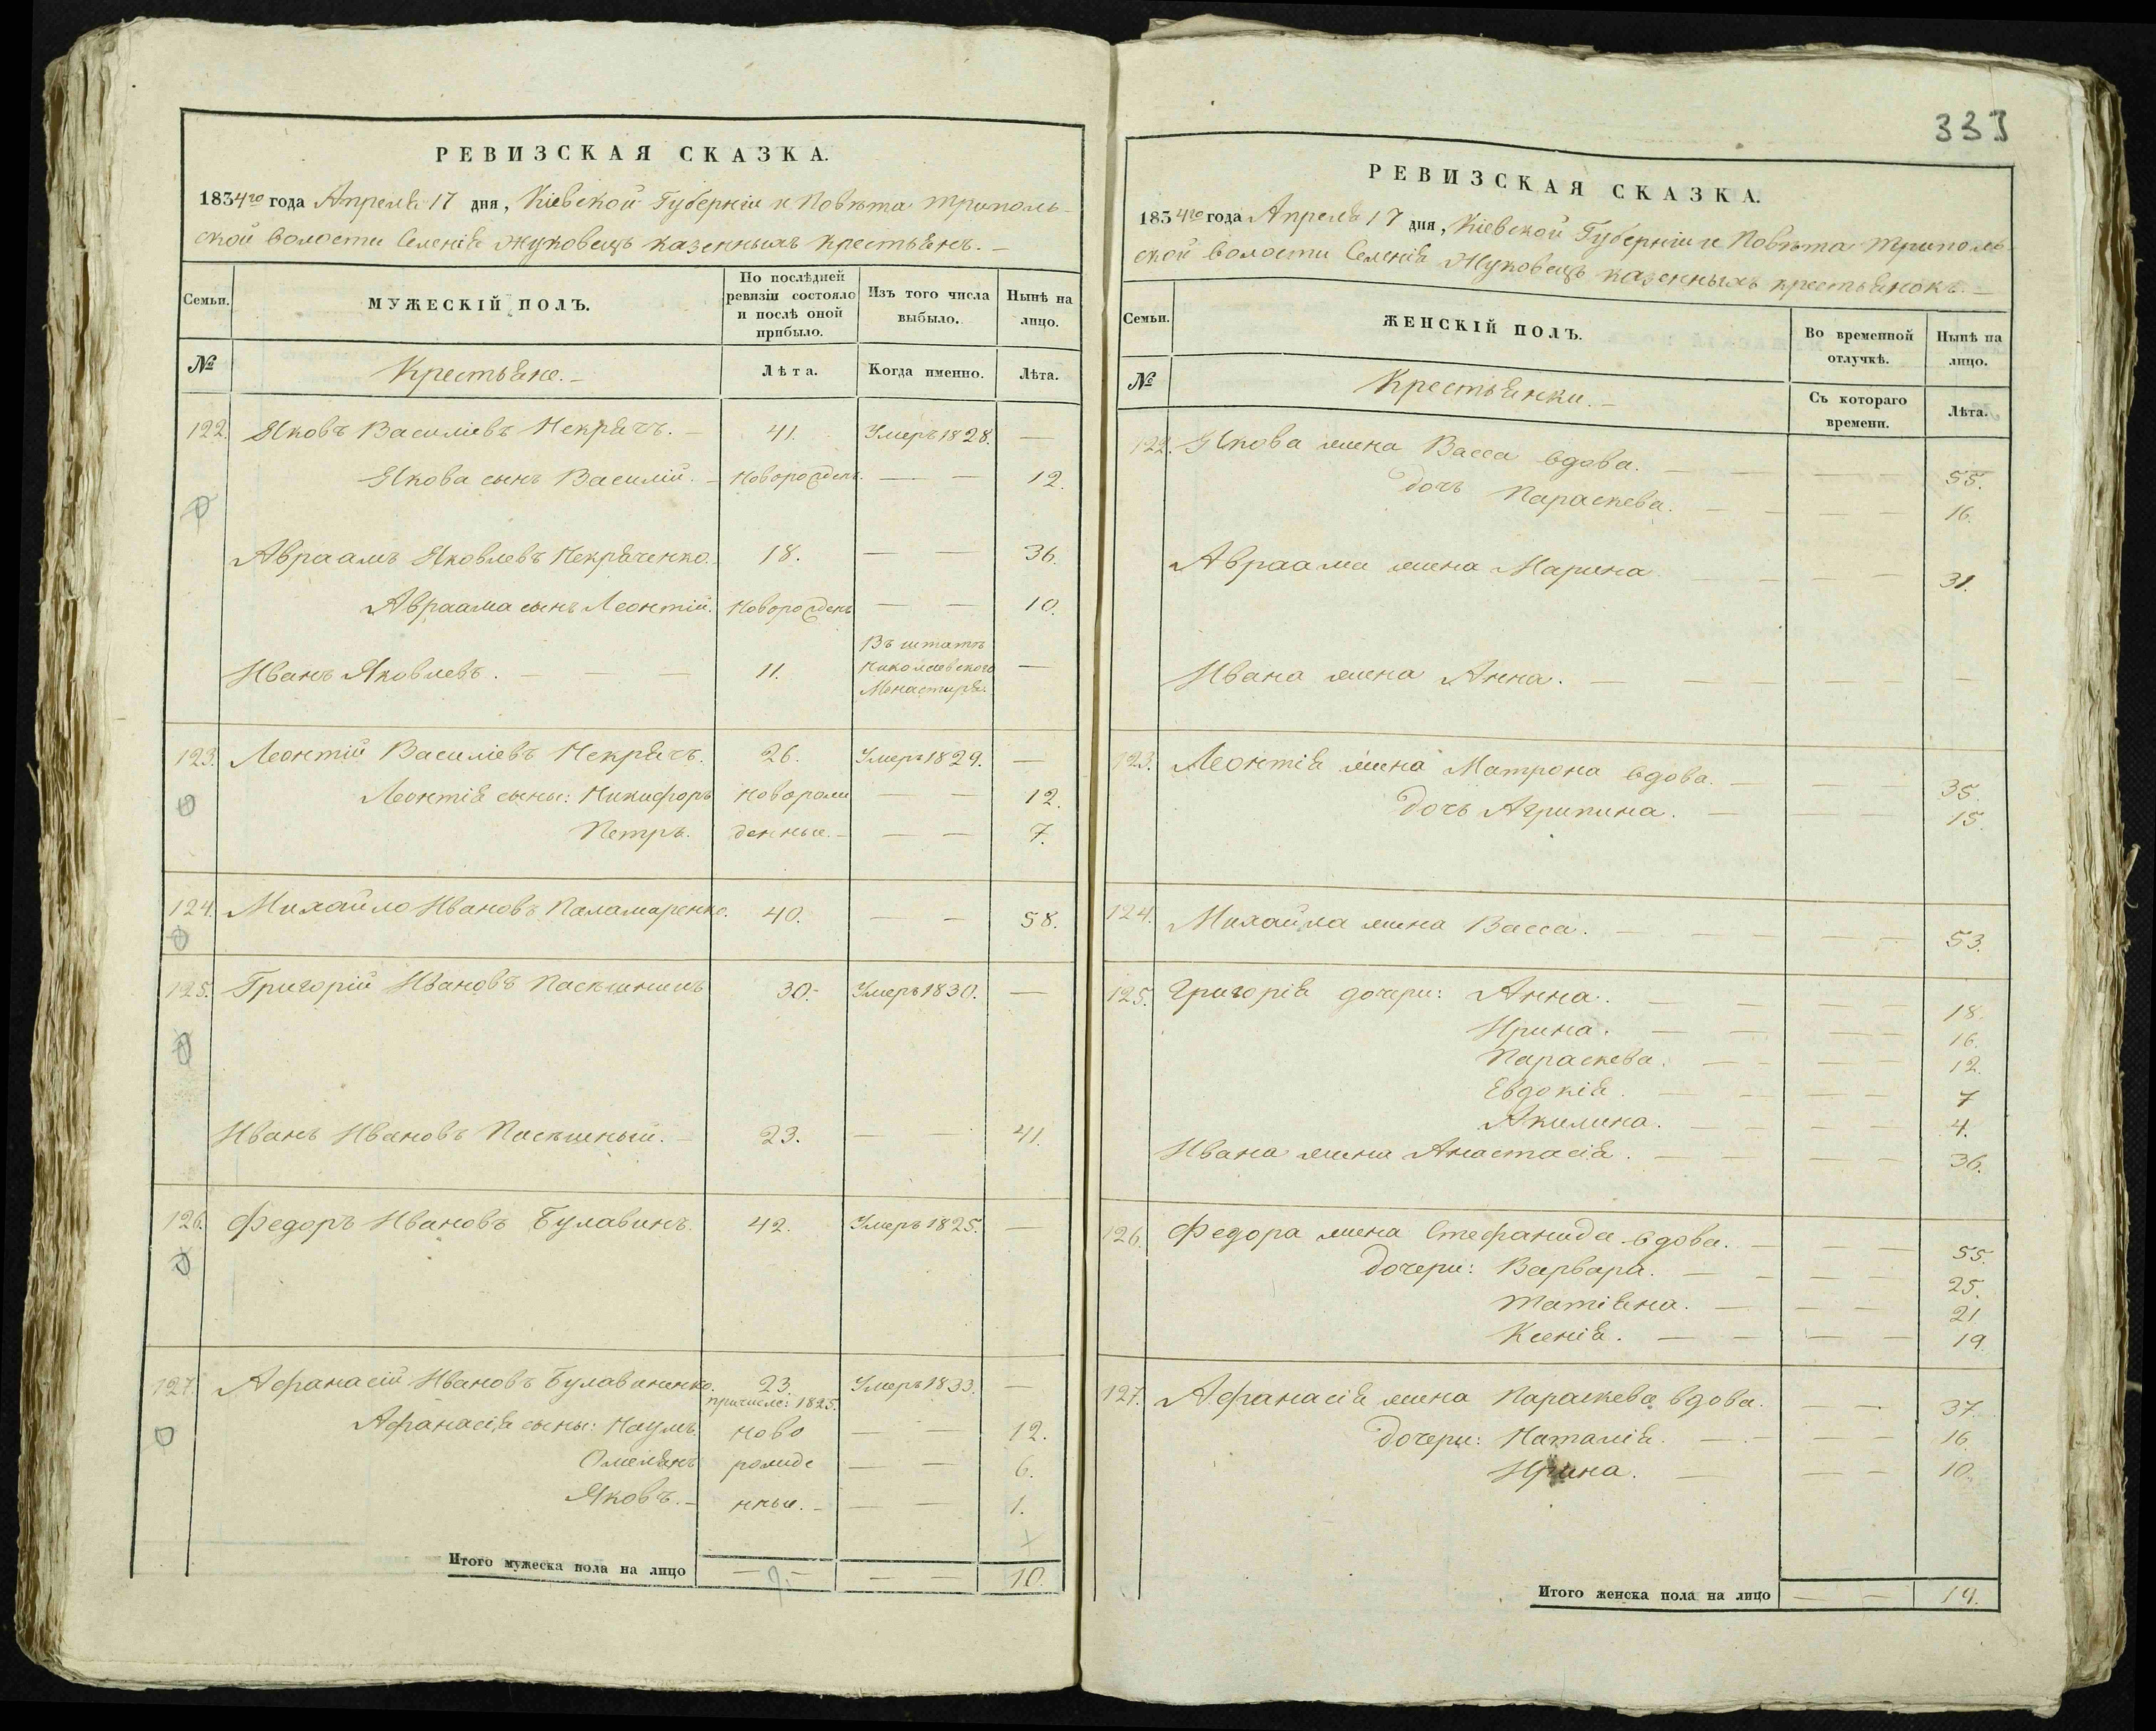 РЕВИЗСКАЯ СКАЗКА.
1834го года Апреля 17 дня, Кіевской Губерніи и Повѣта Триполь-
ской волости Селенія Жуковецъ казенныхъ крестьянъ. —
Семьи.
МУЖЕСКІЙ ПОЛЪ.
По послѣдней ревизіи состояло и послѣ оной прибыло.
Изъ того числа выбыло.
Нынѣ на лицо.
№
Крестьяне. —
Лѣта.
Когда именно.
Лѣта.
122. Яковъ Василіевъ Некрячъ. — 41. Умеръ 1828. —
Якова сынъ Василій. — Новорожденъ. — — 12.
Авраамъ Яковлевъ Некряченко. 18. — — 36.
Авраама сынъ Леонтій. Новорожденъ — — 10.
Въ штатѣ
Иванъ Яковлевъ. — — — 11. Николаевского —
Монастиря.
123. Леонтій Василіевъ Некрячъ. 26. Умеръ 1829. —
Леонтія сыны: Никифоръ новорож — — 12.
Петръ. денные. — — — 7.
124. Михайло Ивановъ Паламаренко. 40. — — 58.
125. Григорій Ивановъ 30. — Умеръ 1830. —
Иванъ Ивановъ Пасѣшный. — 23. — — 41.
126. Федоръ Ивановъ Булавинъ. 42. Умеръ 1825. —
127. Афанасій Ивановъ Булавиненко. 23. Умеръ 1833. —
причисле: 1825.
Афанасія сыны: Наумъ. ново — — 12.
Омелянъ рожде — — 6.
Яковъ. — нные. — — — 1.
Итого мужеска пола на лицо — — — — 10.
333
РЕВИЗСКАЯ СКАЗКА.
1834го года Апреля 17 дня, Кіевской Губерніи и Повѣта Триполь-
ской волости Селенія Жуковецъ казенныхъ крестьянокъ. —
Семьи.
ЖЕНСКІЙ ПОЛЪ.
Во временной отлучкѣ.
Нынѣ на лицо.
№
Крестьянки. —
Съ котораго времени.
Лѣта.
122. Якова жена Васса вдова. — — — — 55.
дочь Параскева. — — — — 16.
Авраама жена Марина — — — — 31.
Ивана жена Анна. — — — — — —
123. Леонтія жена Матрона вдова. — — — 35.
дочь Агрипина. — — — 15.
124. Михайла жена Васса. — — — — — 53.
125. Григорія дочери: Анна. — — — — 18.
Ирина. — — — — 16.
Параскева. — — — — 12.
Евдокія. — — — — 7
Акилина. — — — — 4.
Ивана жена Анастасія. — — — — 36.
126. Федора жена Стефанида вдова. — — — 55.
дочери: Варвара. — — — — 25.
Татіяна. — — — 21
Ксенія. — — — — 19
127. Афанасія жена Параскева вдова. — — 37.
дочери: Наталія. — — — — 16
Ирина. — — — 10.
Итого женска пола на лицо — — 19.